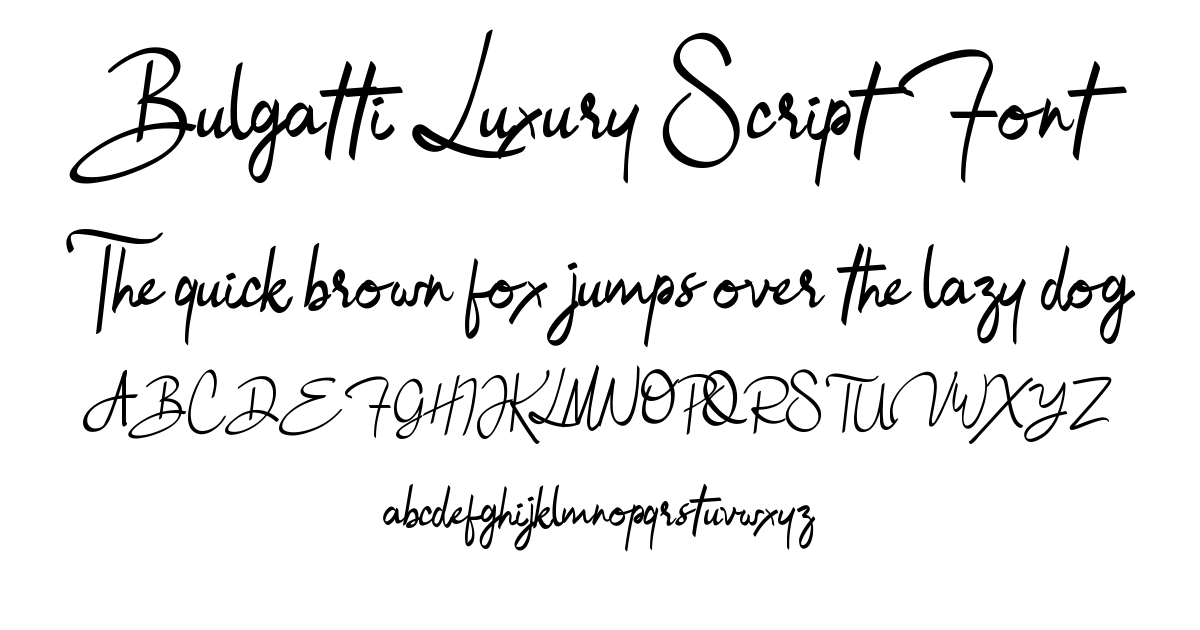 Bulgatti Luxury Script Font
The quick brown fox jumps over the lazy dog
ABCDEFGHIJKLMNOPQRSTUVWXYZ
abcdefghijklmnopqrstuvwxyz